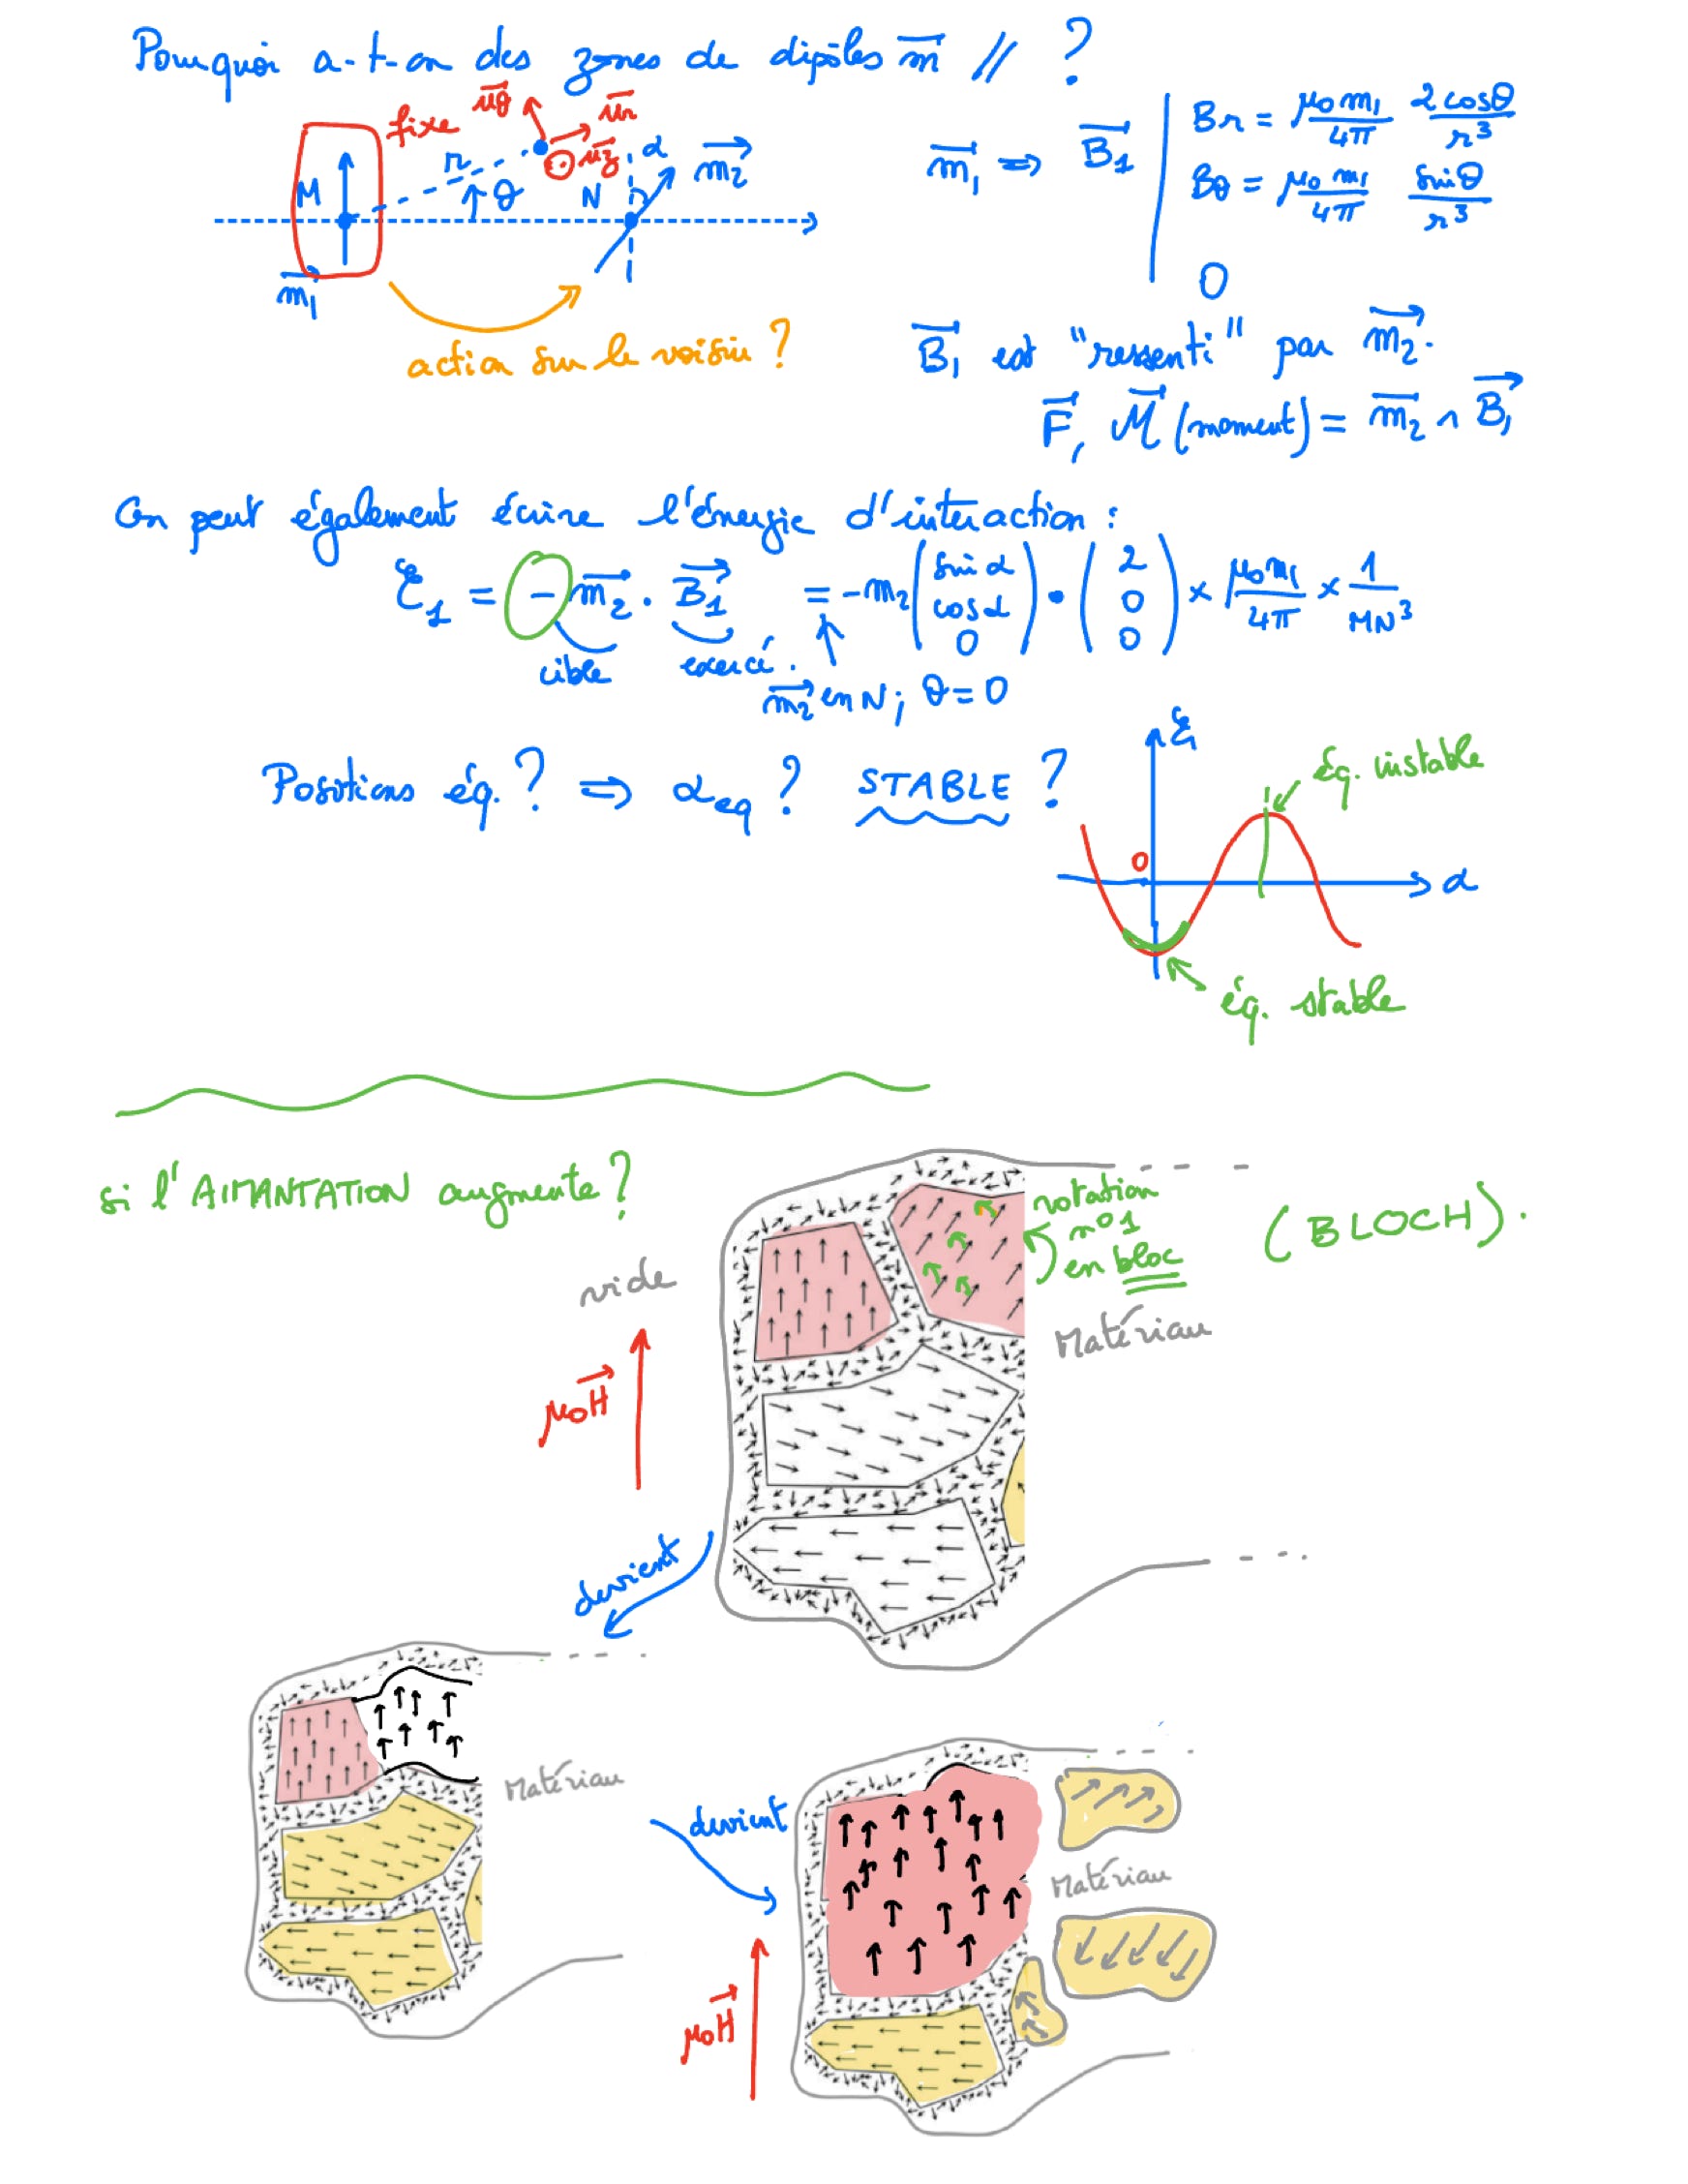 Pourquoi a-t-on des zones de dipôles m⃗ // ?
fixe
u⃗θ
u⃗r
u⃗z
M
r
θ
N
α
m⃗2
m⃗1
action sur le voisin ?
m⃗1 ⇒ B⃗1 | Br = μ0 m1 / 4π 2cosθ / r³
Bθ = μ0 m1 / 4π sinθ / r³
0
B⃗1 est "ressenti" par m⃗2.
F⃗, M⃗ (moment) = m⃗2 ∧ B⃗1
On peut également écrire l'énergie d'interaction :
ℰ1 = - m⃗2 . B⃗1 = -m2 (sinα cosα 0) • (2 0 0) × μ0 m1 / 4π × 1 / MN³
cible exercé.
m⃗2 en N ; θ=0
Positions éq. ? ⇒ αeq ? STABLE ?
ℰ1
éq. instable
0
α
éq. stable
si l'AIMANTATION augmente ?
rotation
n°1
en bloc
(BLOCH).
vide
Matériau
μ0H⃗
devient
Matériau
devient
Matériau
μ0H⃗